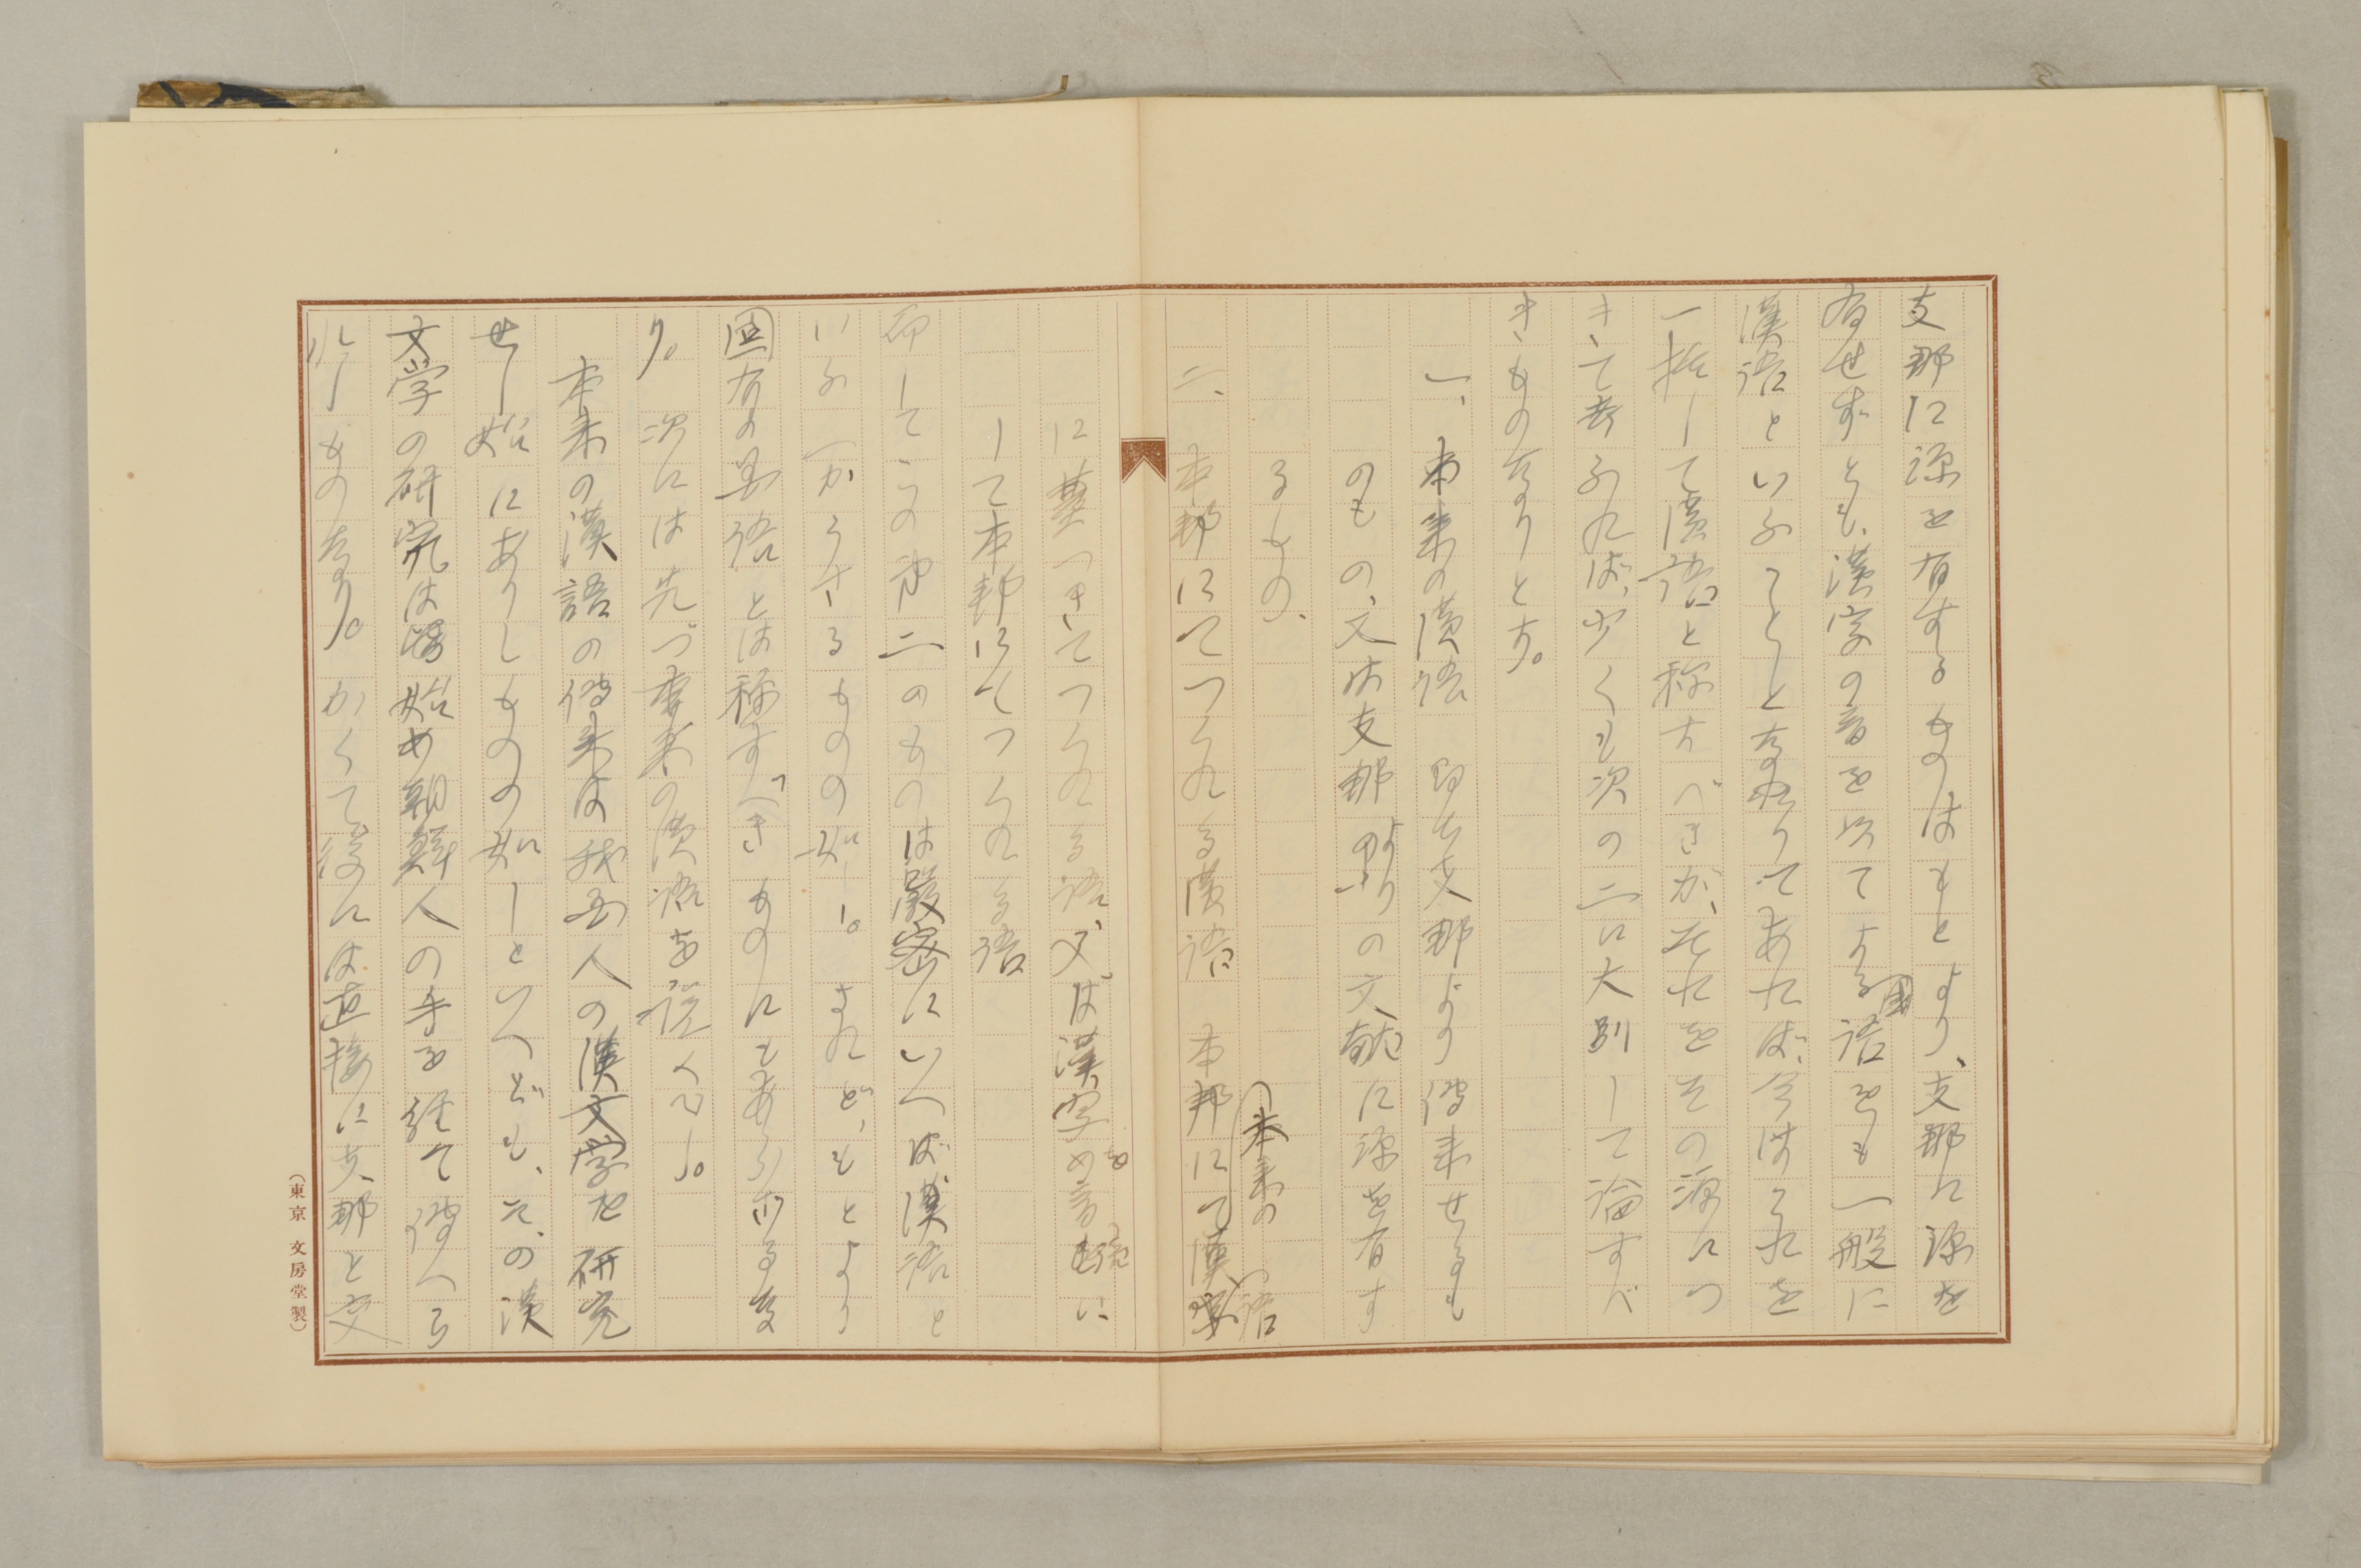 支那に源を有するものはもとより、支那に源を
有せずとも、漢字の音を以てよる國語をも一般に
漢語といふことゝなりてあれば、今はこれを
一括して漢語と称すべきが、それをその源につ
きて考ふれば、少くも次の二に大別して論すべ
きものなりとす。
一、本来の漢語 即ち支那より傳来せる
のもの、又は支那よりの文献に源を有す
るもの、
二、本邦にてつくれる漢語 本邦にて漢
本来の 語
に基つきてつくれる語、又は漢字を音に
して本邦にてつくれる語
而してこの第二のものは嚴密にいへば漢語と
いふべからさるものの如し。されど、もとより
固有の国語とは称すべきものにもあらさるな
り。次には先づ本来の漢語を説くべし。
本来の漢語の傳来は我国人の漢文学を研究
せし始にありしものの如しといへども、その漢
文学の研究は始め朝鮮人の手を経て傳へら
れしものなり。かくて後には直接に支那と交
(東京 文房堂製)